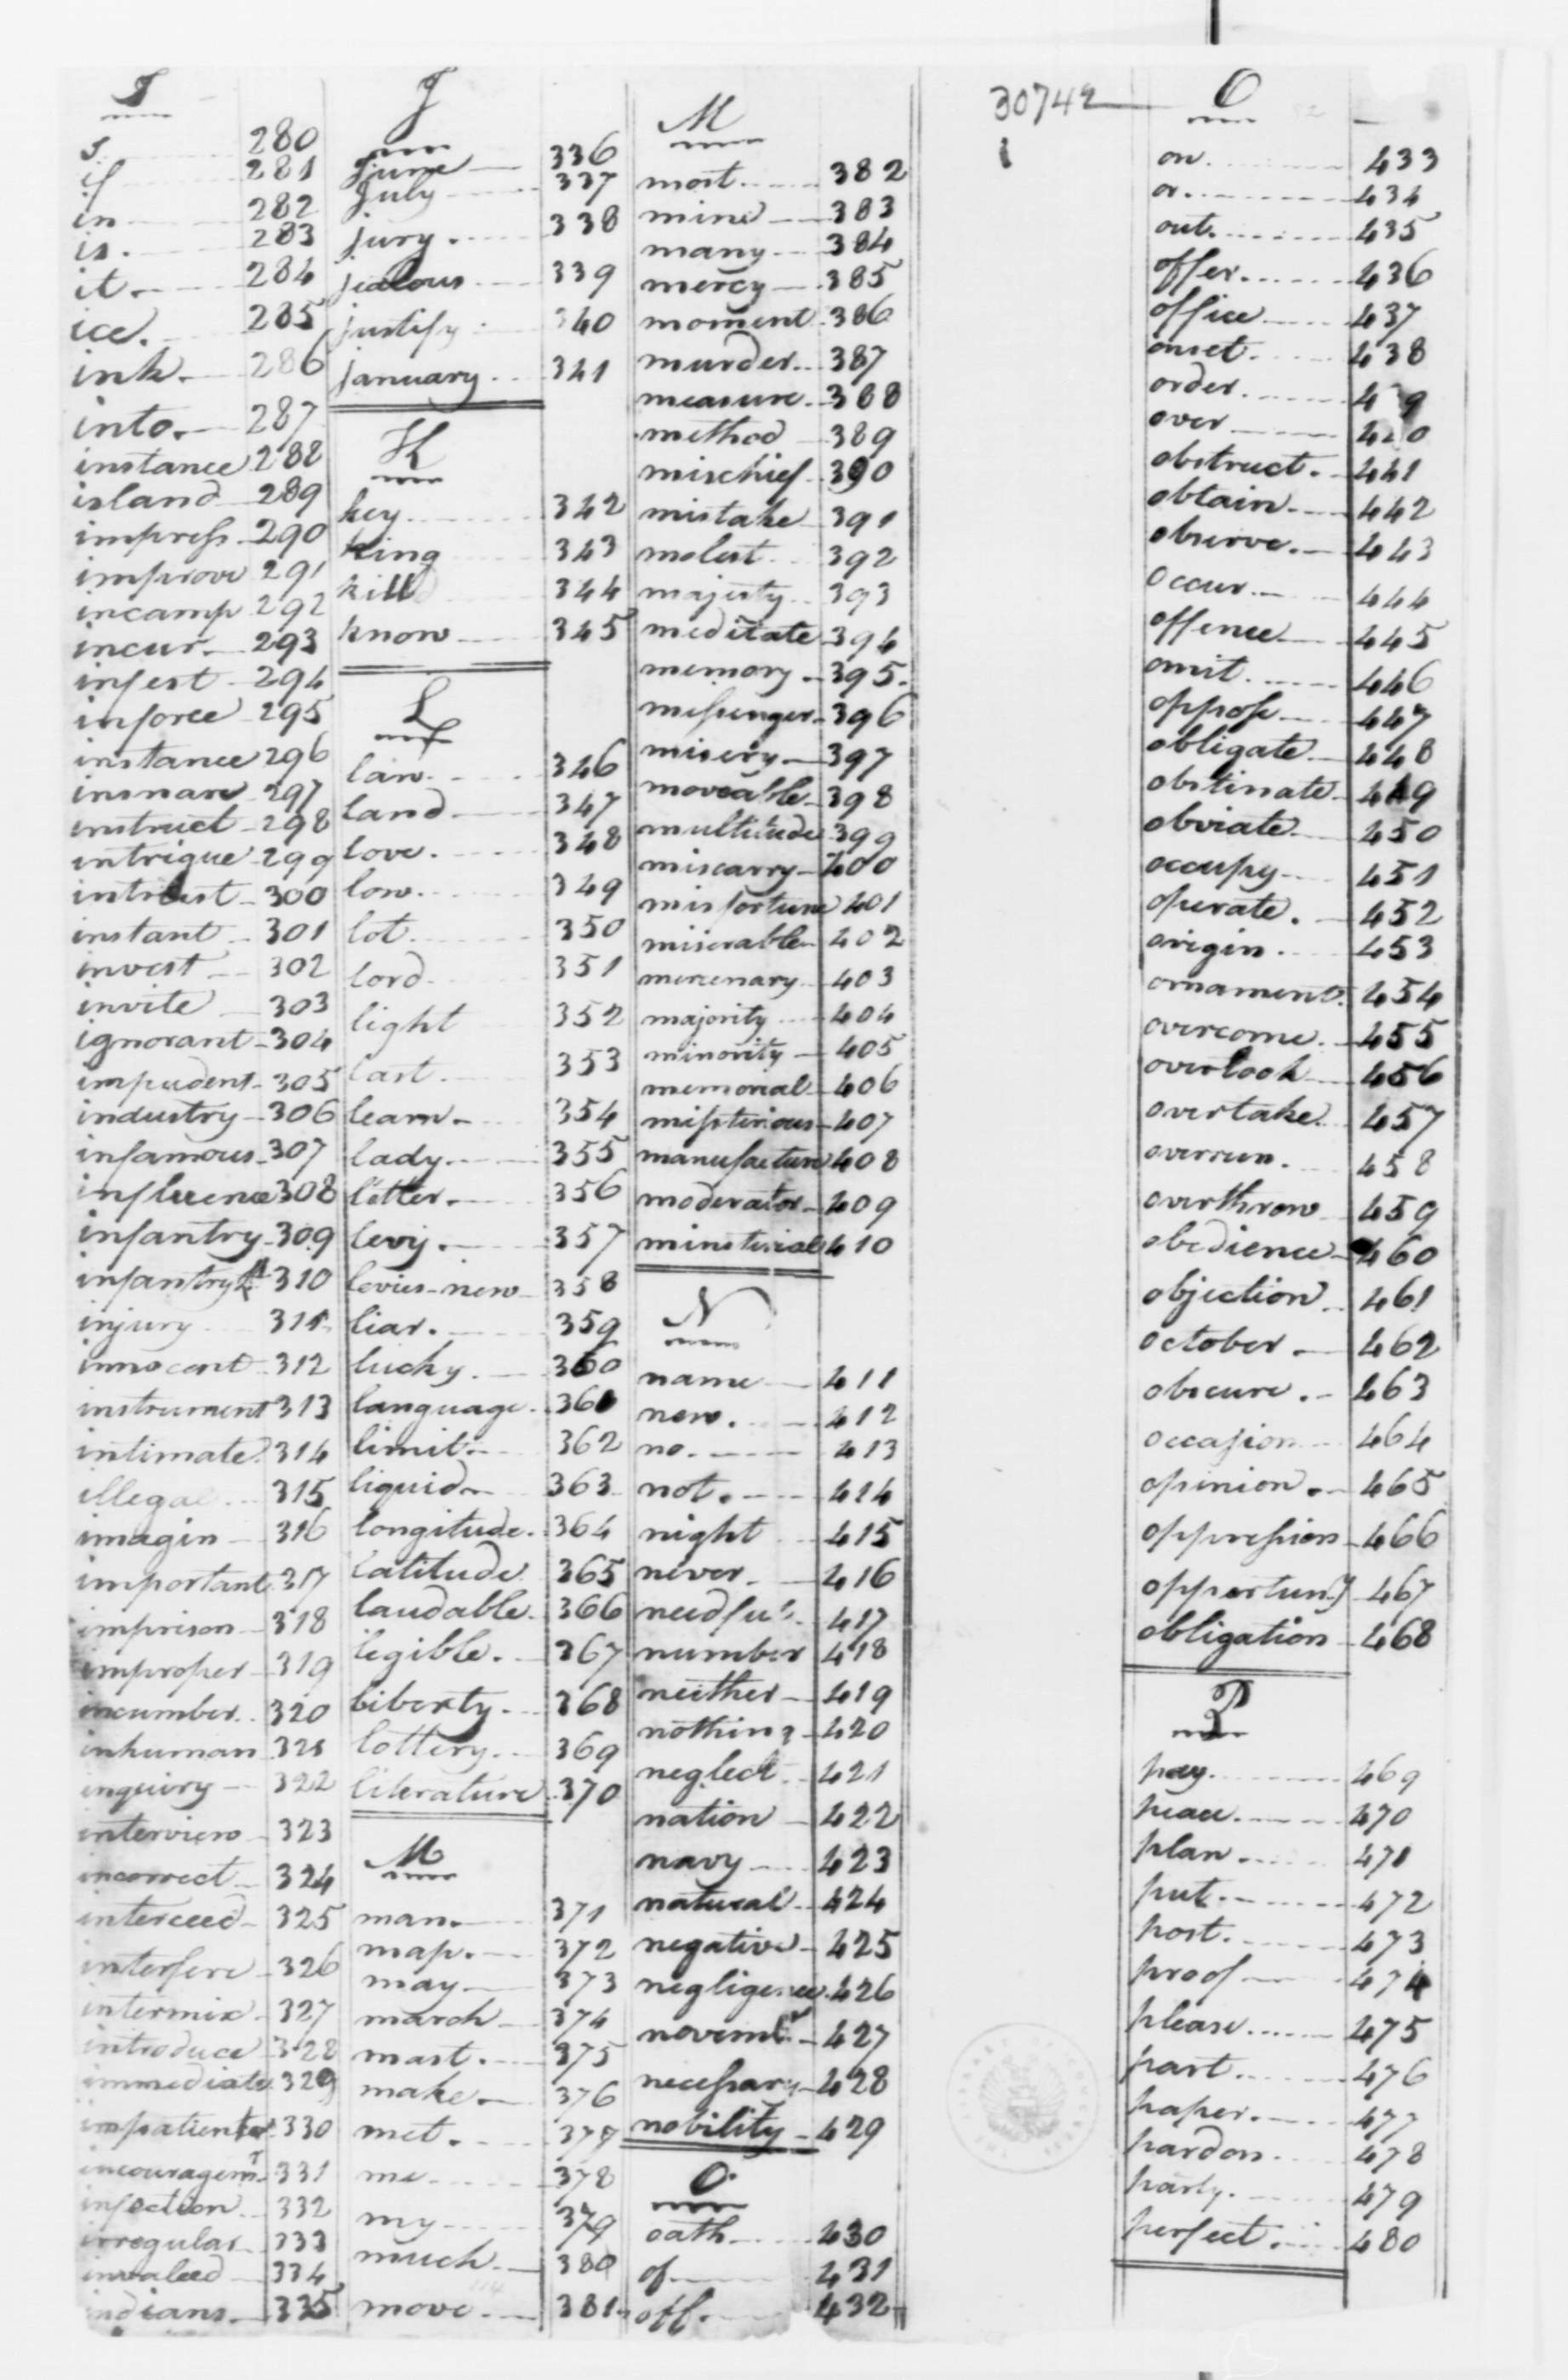 I
I 280
if 281
in 282
is. 283
it. 284
ice. 285
ink. 286
into. 287
instance 288
island 289
impress 290
improve 291
incamp 292
incur. 293
infest 294
inforce 295
instance 296
insnare 297
instruct 298
intrigue 299
intrust 300
instant 301
invest 302
invite 303
ignorant 304
impudent 305
industry 306
infamous 307
influence 308
infantry 309
infantry 310
injury 311
innocent 312
instrument 313
intimate 314
illegal 315
imagin 316
important 317
imprison 318
improper 319
incumber 320
inhuman 321
inquiry 322
interview 323
incorrect 324
interceed 325
interfere 326
intermix 327
introduce 328
immediate 329
impatient 330
incouragemt 331
infection 332
irregular 333
invalied 334
indians 335
J
June 336
July 337
jury. 338
jealous 339
justify 340
january 341
K
key 342
king 343
kill 344
know 345
L
law 346
land 347
love. 348
low. 349
lot 350
lord 351
light 352
last 353
learn 354
lady. 355
letter. 356
levy. 357
levies-new 358
liar. 359
lucky. 360
language. 361
limit. 362
liquid 363
longitude. 364
latitude 365
laudable. 366
legible. 367
liberty. 368
lottery. 369
literature 370
M
man. 371
map. 372
may 373
march 374
mast. 375
make 376
met. 377
me 378
my 379
much 380
move 381
M
most 382
mine 383
many 384
mercy 385
moment 386
murder. 387
measure. 388
method 389
mischief 390
mistake 391
molest 392
majesty 393
meditate 394
memory 395.
messenger 396
misery 397
moveable 398
multitude 399
miscarry 400
misfortune 401
miserable 402
mercenary 403
majority 404
minority 405
memorial 406
misterious 407
manufacture 408
moderator 409
minsterial 410
N
name 411
new. 412
no. 413
not. 414
night 415
never 416
needful 417
number 418
neither 419
nothing 420
neglect 421
nation 422
navy 423
natural 424
negative 425
negligence 426
novembr 427
necessary 428
nobility 429
O.
oath 430
of 431
off. 432
30742
1
O
on 433
or 434
out. 435
offer. 436
office 437
onset. 438
order. 439
over 440
obstruct. 441
obtain 442
observe. 443
occur 444
offence 445
omit 446
oppose 447
obligate 448
obstinate 449
obviate 450
occupy 451
operate. 452
origin. 453
ornament. 454
overcome. 455
overlook 456
overtake. 457
overrun. 458
overthrow 459
obedience 460
objection 461
october 462
obscure. 463
occasion 464
opinion. 465
oppression 466
opportuny 467
obligation 468
P
pay. 469
peace. 470
plan. 471
put. 472
post. 473
proof 474
please 475
part. 476
paper. 477
pardon. 478
party. 479
perfect. 480